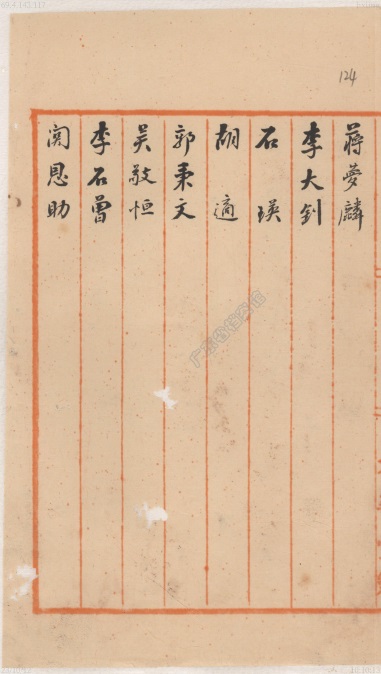 124
蔣夢麟
李大釗
石瑛
胡適
郭秉文
吳敬恒
李石曾
関恩助